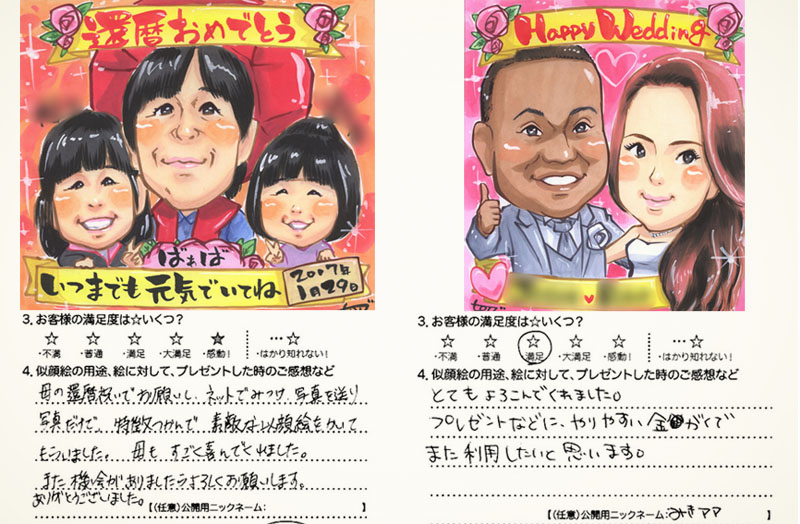 還暦おめでとう
ばぁば
いつまでも元気でいてね
2017年
1月29日
3. お客様の満足度は☆いくつ？
☆ ☆ ☆ ☆ ★ ⋯☆
・不満 ・普通 ・満足 ・大満足 ・感動！ ・はかり知れない！
4. 似顔絵の用途、絵に対して、プレゼントした時のご感想など
母の還暦祝いでお願いし、ネットでみつけ、写真を送り
写真だけで、特徴つかんで 素敵な似顔絵をかいて
もらいました。母も すごく喜んでくれました。
また機会がありましたらよろしくお願いします。
ありがとうございました。
【（任意）公開用ニックネーム： 】
Happy Wedding
3. お客様の満足度は☆いくつ？
☆ ☆ ☆ ☆ ☆ ⋯☆
・不満 ・普通 ・満足 ・大満足 ・感動！ ・はかり知れない！
4. 似顔絵の用途、絵に対して、プレゼントした時のご感想など
とてもよろこんでくれました。
プレゼントなどに、やりやすい 金がくで
また利用したいと思います。
【（任意）公開用ニックネーム：みきママ 】